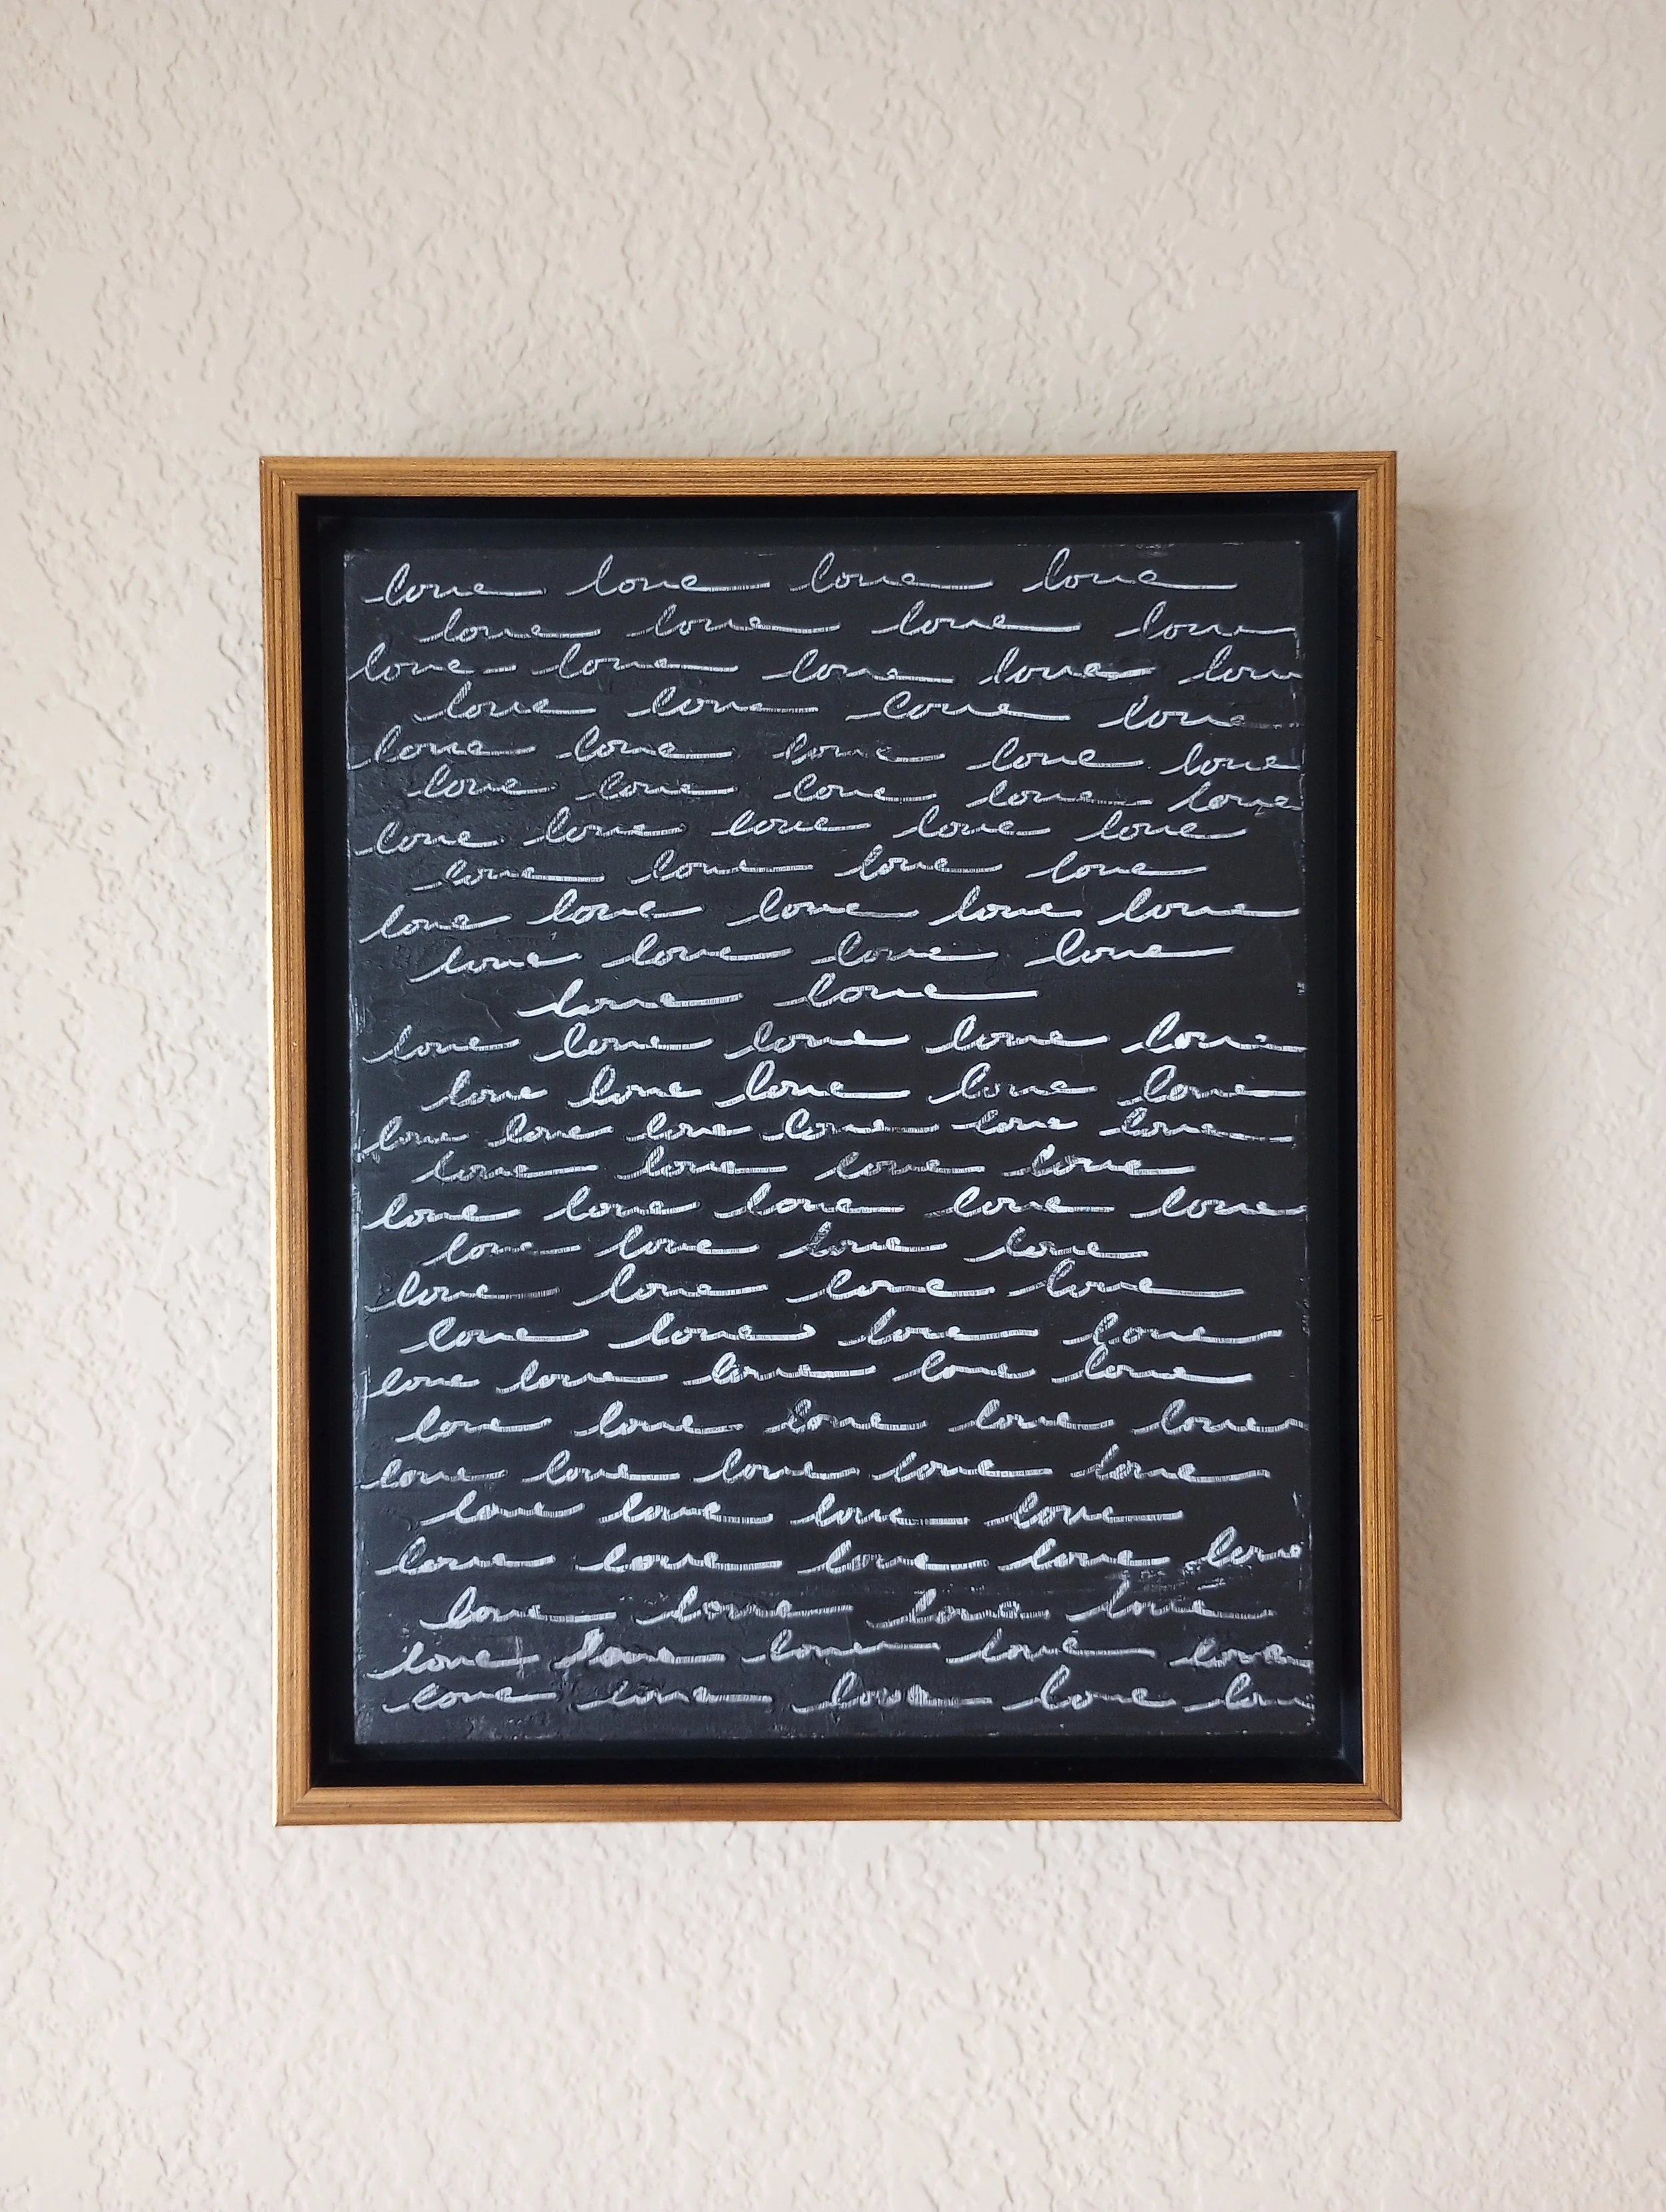 love love love love
love love love love
love love love love love
love love love love
love love love love love
love love love love love
love love love love love
love love love love
love love love love love
love love love love
love love
love love love love love
love love love love love
love love love love love love
love love love love
love love love love love
love love love love
love love love love
love love love love
love love love love love
love love love love love
love love love love love
love love love love
love love love love love
love love love love
love love love love love
love love love love love